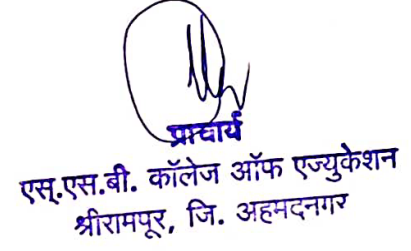 प्राचार्य
एस्.एस.बी. कॉलेज ऑफ एज्युकेशन
श्रीरामपूर, जि. अहमदनगर